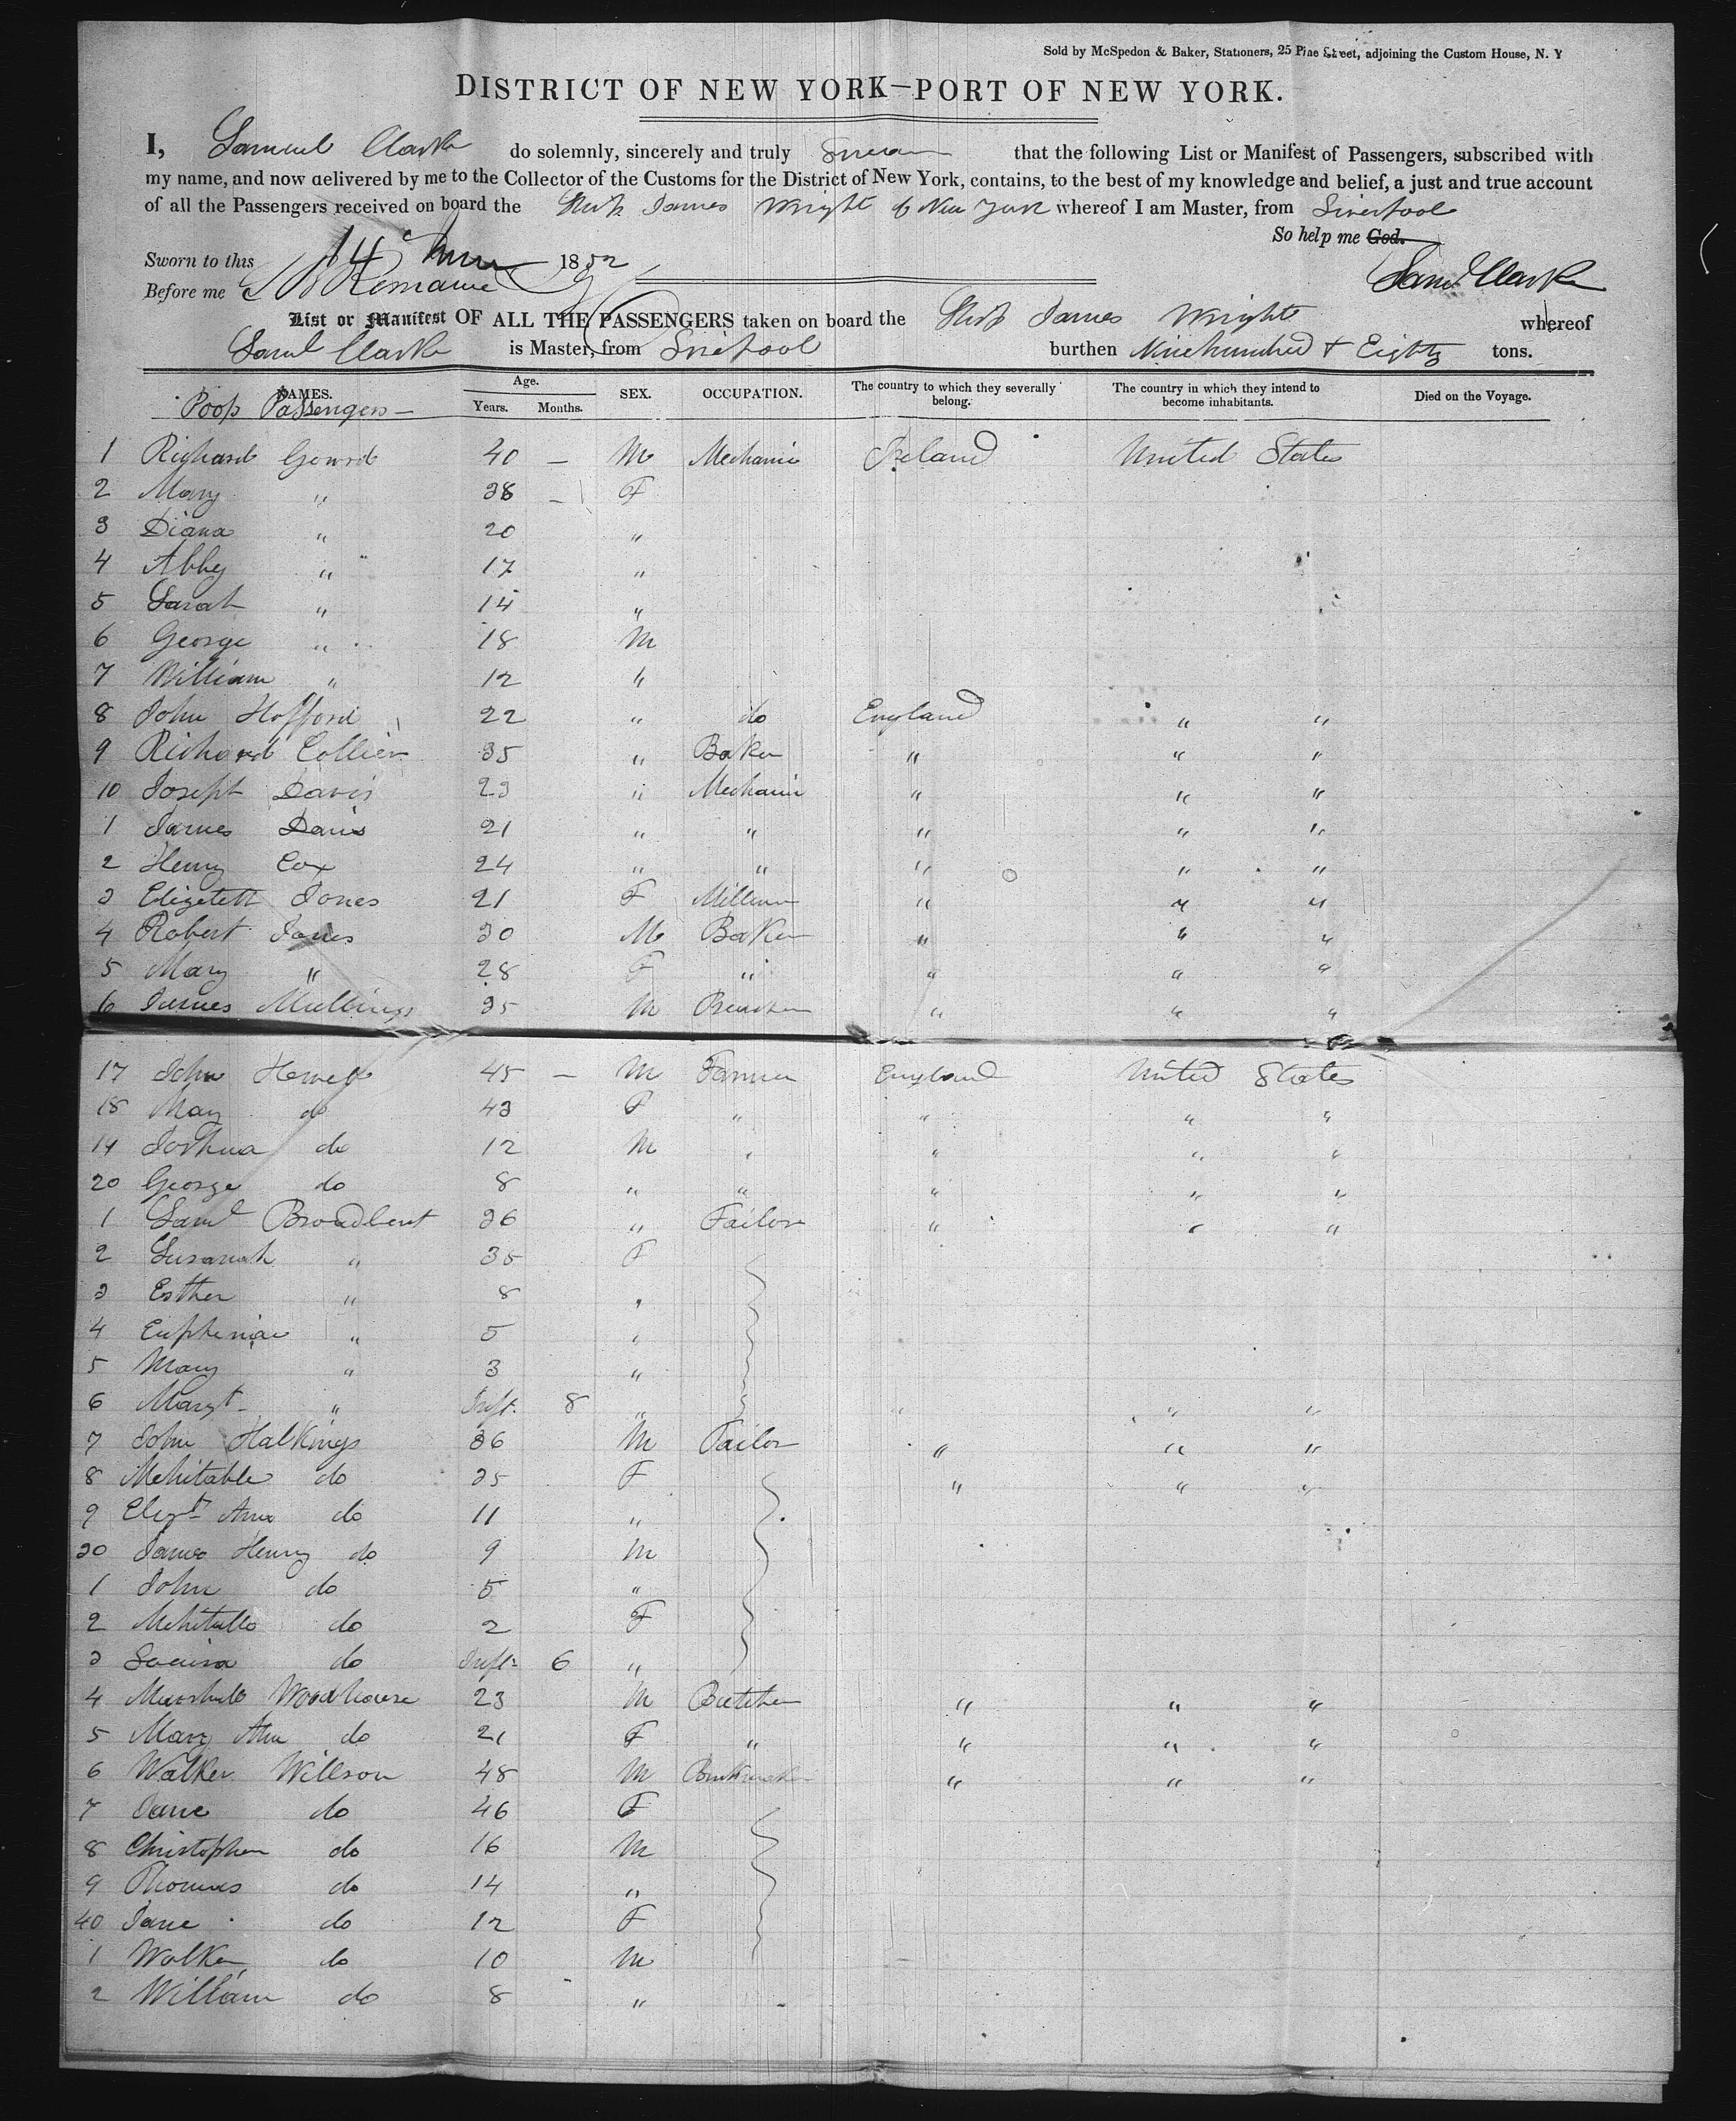 Sold by McSpedon & Baker, Stationers, 25 Pine Street, adjoining the Custom House, N. Y
DISTRICT OF NEW YORK—PORT OF NEW YORK.
I, Samuel Clarke do solemnly, sincerely and truly Swear that the following List or Manifest of Passengers, subscribed with
my name, and now delivered by me to the Collector of the Customs for the District of New York, contains, to the best of my knowledge and belief, a just and true account
of all the Passengers received on board the Ship James Wright of New York whereof I am Master, from Liverpool
So help me God.
Sworn to this 14 June 1852
Saml Clarke
Before me
List or Manifest OF ALL THE PASSENGERS taken on board the Ship James Wright whereof
Saml Clarke is Master, from Liverpool burthen Nine hundred & Eighty tons.
NAMES. Age. Years. Months. SEX. OCCUPATION. The country to which they severally belong. The country in which they intend to become inhabitants. Died on the Voyage.
Poop Passengers —
1 Richard 40 — M Mechanic Ireland United States
2 Mary " 38 — F
3 Diana " 20 "
4 Abby " 17 "
5 Sarah " 14 "
6 George " 18 M
7 William " 12 "
8 John 22 " do England " "
9 Richard Collier 35 " Baker " " "
10 Joseph Davis 23 " Mechanic " " "
1 James Davis 21 " " " " "
2 Henry Cox 24 " " " " "
3 Elizabeth Jones 21 F Milliner " " "
4 Robert Jones 30 M Baker " " "
5 Mary " 28 F " " " "
6 James Mullings 35 M " " "
17 John 45 — M Farmer England United States
18 Mary do 43 F " " " "
19 Joshua do 12 M " " " "
20 George do 8 " " " " "
1 Saml Broadbent 36 " Tailor " " "
2 Susanah " 35 F
3 Esther " 8 "
4 Euphemia " 5 "
5 Mary " 3 "
6 Margt " Inft. 8 " " " "
7 John Halkings 36 M Tailor " " "
8 Mehitable do 35 F " " "
9 Elizth Ann do 11 "
30 James Henry do 9 M
1 John do 5 "
2 Mehitable do 2 F
3 Louisa do Inft. 6 "
4 Marshall Woodhouse 23 M Butcher " " "
5 Mary Ann do 21 F " " " "
6 Walker Willson 48 M " " "
7 Jane do 46 F
8 Christopher do 16 M
9 Thomas do 14 "
40 Jane do 12 F
1 Walker do 10 M
2 William do 8 "